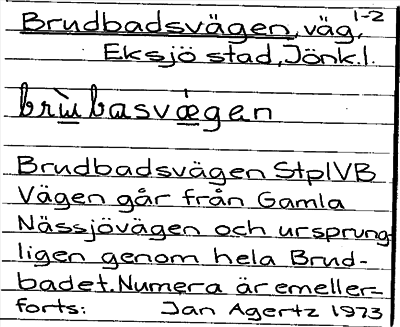 1-2
Brudbadsvägen, väg,
Eksjö stad, Jönk.l.
brùbasvǽgen
Brudbadsvägen StplVB
Vägen går från Gamla
Nässjövägen och ursprung-
ligen genom hela Brud-
badet. Numera är emeller-
forts: Jan Agertz 1973